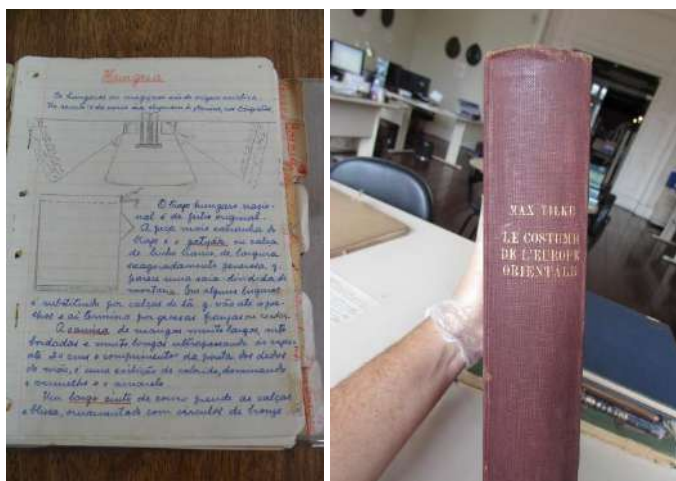 Hungria
Os húngaros ou magiares são de origem asiática.
O traje húngaro nacio-
nal é de feitio original.
A peça mais estranha do
traje é o gatyák, ou calça
de linho branco, de largura
exageradamente generosa, q.
parece uma saia dividida de
montaria. Em alguns lugares
é substituída por calças de lã q. vão até o joe-
lhos e aí termina por grossas franjas ou
A camisa de mangas muito largas, mto
bordadas e muito longas ultrapassando às vezes
até 20 cms o comprimento da ponta dos dedos
da mão, é uma exibição de colorido, dominando
o vermelho e o amarelo
Um longo cinto de couro prende as calças
e blusa, ornamentado com círculos de bronze
MAX TILKE
LE COSTUME
DE L'EUROPE
ORIENTALE